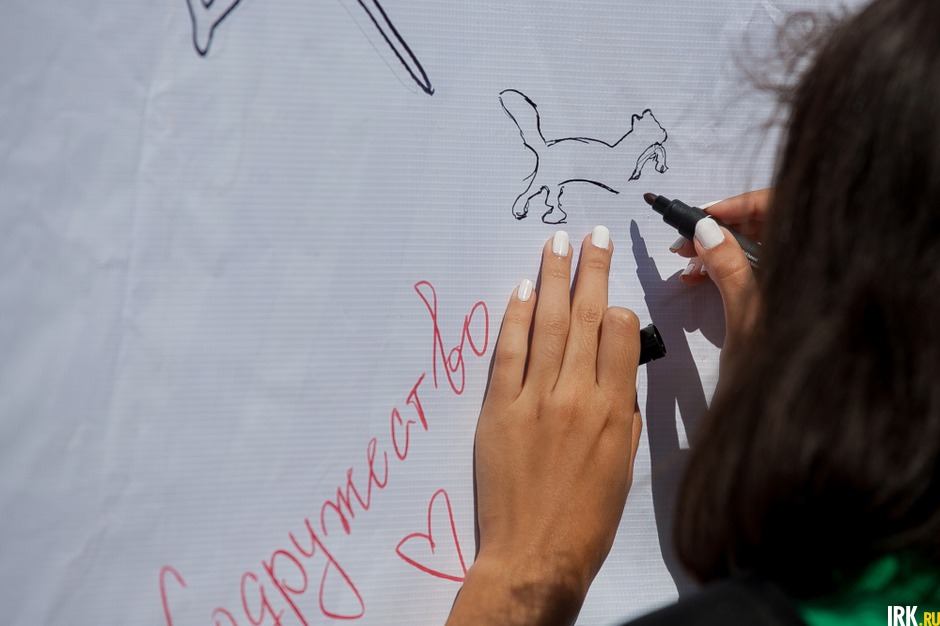 Содружество
IRK.RU